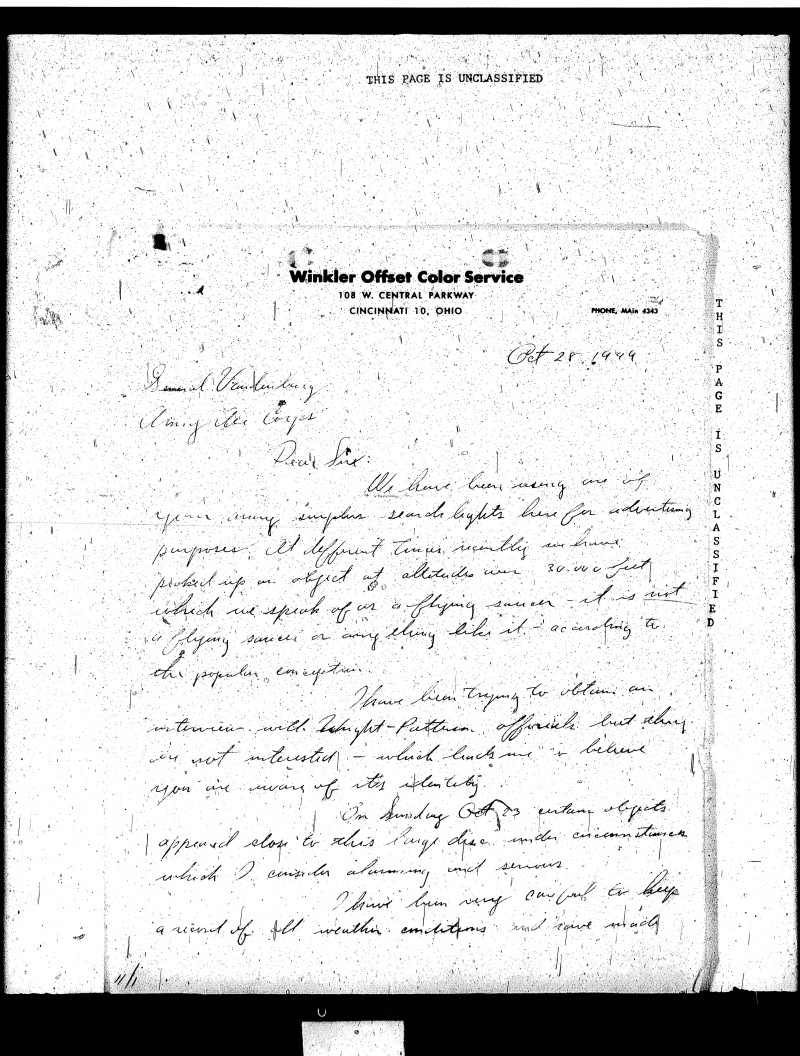 THIS PAGE IS UNCLASSIFIED
Winkler Offset Color Service
108 W. CENTRAL PARKWAY
CINCINNATI 10, OHIO
PHONE, MAin 4343
THIS PAGE IS UNCLASSIFIED
Oct 28, 1949
General Vandenburg
Army Air Corps
Dear Sir:
We have been using one of
your army surplus search lights here for advertising
purposes. At different times recently we have
picked up an object at altitudes over 30.000 feet
which we speak of as a flying saucer - it is not
a flying saucer or any thing like it, according to
the popular conception.
I have been trying to obtain an
interview with Wright-Patterson officials but they
are not interested - which leads me to believe
you are aware of its identity.
On Sunday Oct 23 certain objects
appeared close to this large disc under circumstances
which I consider alarming and serious.
I have been very careful to keep
a record of all weather conditions and have made